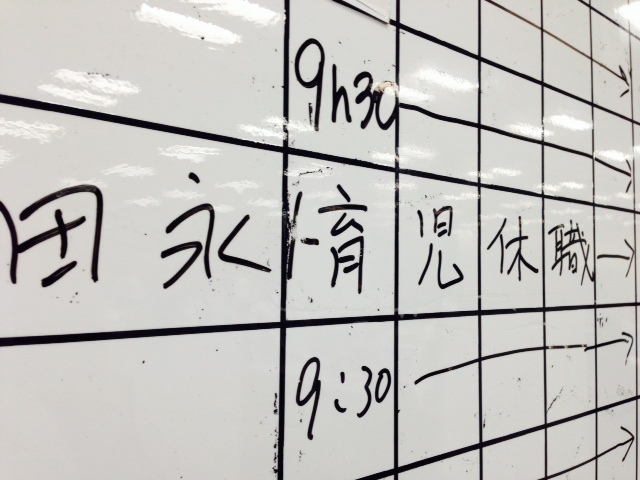 9h30
田永 育児休職
9:30